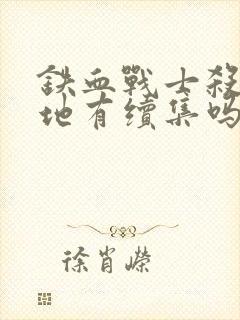 鉄血戰士殺
地有續集吗
徐肖嶸